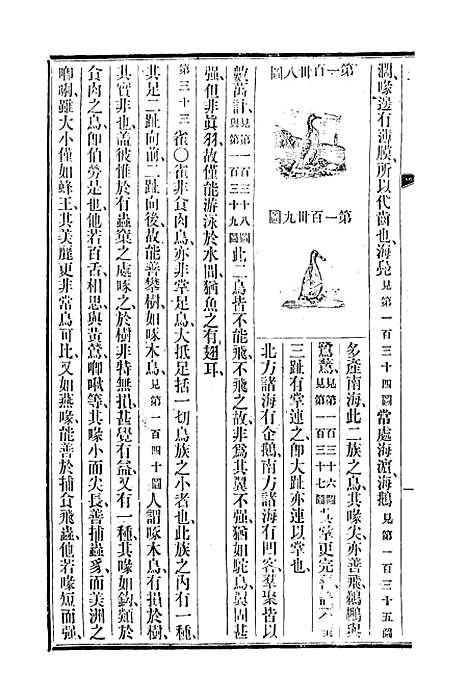 濶、喙邊有薄膜、所以代齒也、海凫見第一百三十四圖常處海濵、海鵝見第一百三十五圖
第一百卅八圖
第一百卅九圖
多產南海、此二族之鳥、其喙尖、亦善飛、鵜鶘與
鷺鶿、見第一百三十六圖見第一百三十七圖其掌更完
三趾有掌連之、卽大趾亦連以掌也、
北方諸海有企鵝、南方諸海有凹容、羣聚皆以
數萬計、見第一百三十八圖與第一百三十九圖此二鳥皆不能飛、不飛之故、非爲其翼不强、猶如駝鳥、翼固甚
强、但非眞羽、故僅能游泳於水間、猶魚之有翅耳、
第三十三 雀〇雀非食肉鳥、亦非掌足鳥、大抵足括一切鳥族之小者也、此族之內有一種、
其足二趾向前、二趾向後、故能善攀樹、如啄木鳥、見第一百四十圖人謂啄木鳥有損於樹、
其實非也、蓋彼惟於有蟲窠之處啄之、於樹非特無損、甚覺有益、又有一種、其喙如鈎、類於
食肉之鳥、卽伯勞是也、他若百舌、相思、與黃鶯、啁啾等、其喙小而尖長、善捕蟲豸、而美洲之
啁唎、雖大小僅如蜂王、其美麗更非常鳥可比、又如燕喙、能善於捕食飛蟲、他若喙短而强、